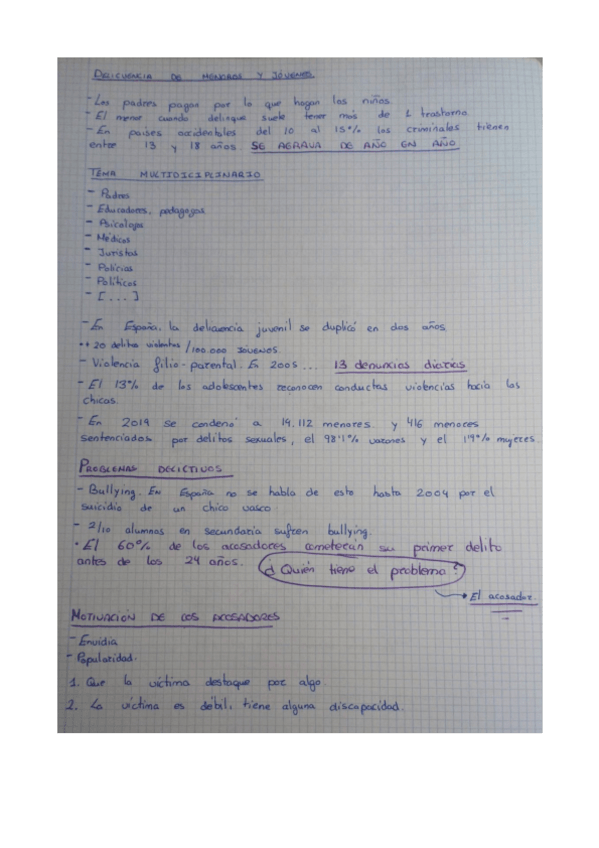 DELICUENCIA DE MENORES Y JÓVENES
- Los padres pagan por lo que hagan los niños.
- El menor cuando delinque suele tener más de 1 trastorno.
- En países occidentales del 10 al 15% los criminales tienen
entre 13 y 18 años. SE AGRAVA DE AÑO EN AÑO
TEMA MULTIDICIPLINARIO
- Padres
- Educadores, pedagogos
- Psicólogos
- Médicos
- Juristas
- Policías
- Políticos
- [...]
- En España, la delicuencia juvenil se duplicó en dos años
·+ 20 delitos violentos /100.000 JÓVENES.
- Violencia filio-parental. En 2005 ... 13 denuncias diarias
- El 13% de los adolescentes reconocen conductas violencias hacia las
chicas.
- En 2019 se condenó a 14.112 menores. y 416 menores
sentenciados por delitos sexuales, el 98'1% varones y el 1'9% mujeres.
PROBLEMAS DELICTIVOS
- Bullying. En España no se habla de esto hasta 2004 por el
suicidio de un chico vasco
- 2/10 alumnos en secundaria sufren bullying.
· El 60% de los acosadores cometerán su primer delito
antes de los 24 años. ¿Quién tiene el problema?
→ El acosador.
MOTIVACIÓN DE LOS ACOSADORES
- Envidia
- Popularidad.
1. Que la víctima destaque por algo.
2. La víctima es débil, tiene alguna discapacidad.